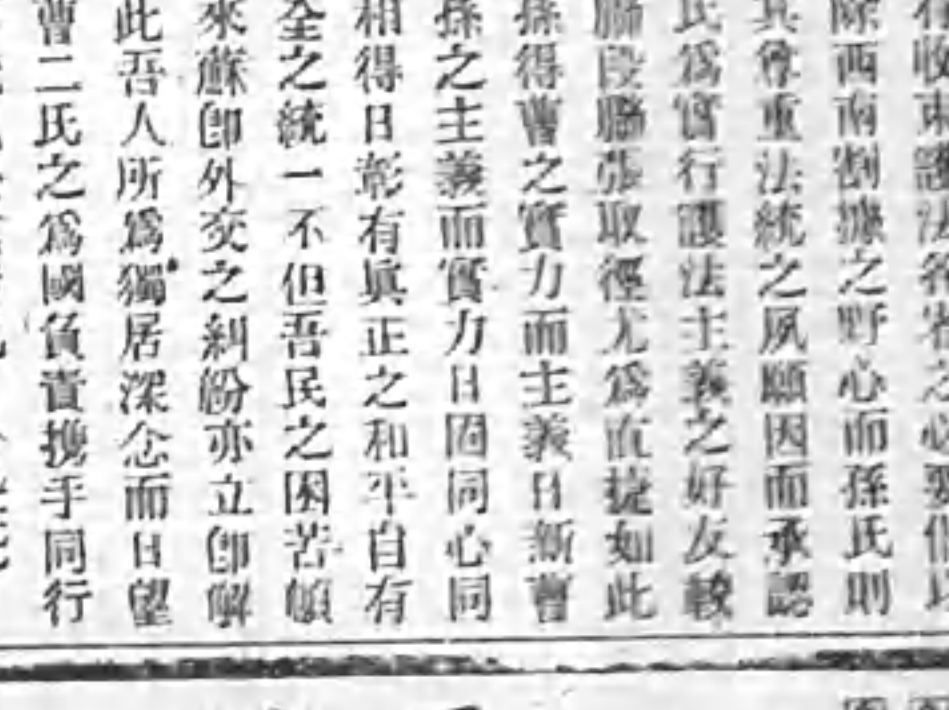 收東護法
除西南割據之野心而孫氏則
其尊重法統之夙願因而承認
氏為實行護法主義之好友較
聯段聯張取徑尤為直捷如此
孫得曹之實力而主義日新曹
孫之主義而實力日固同心同
相得日彰有眞正之和平自有
全之統一不但吾民之困苦頓
來蘇卽外交之糾紛亦立卽解
此吾人所為獨居深念而日望
曹二氏之為國負責携手同行